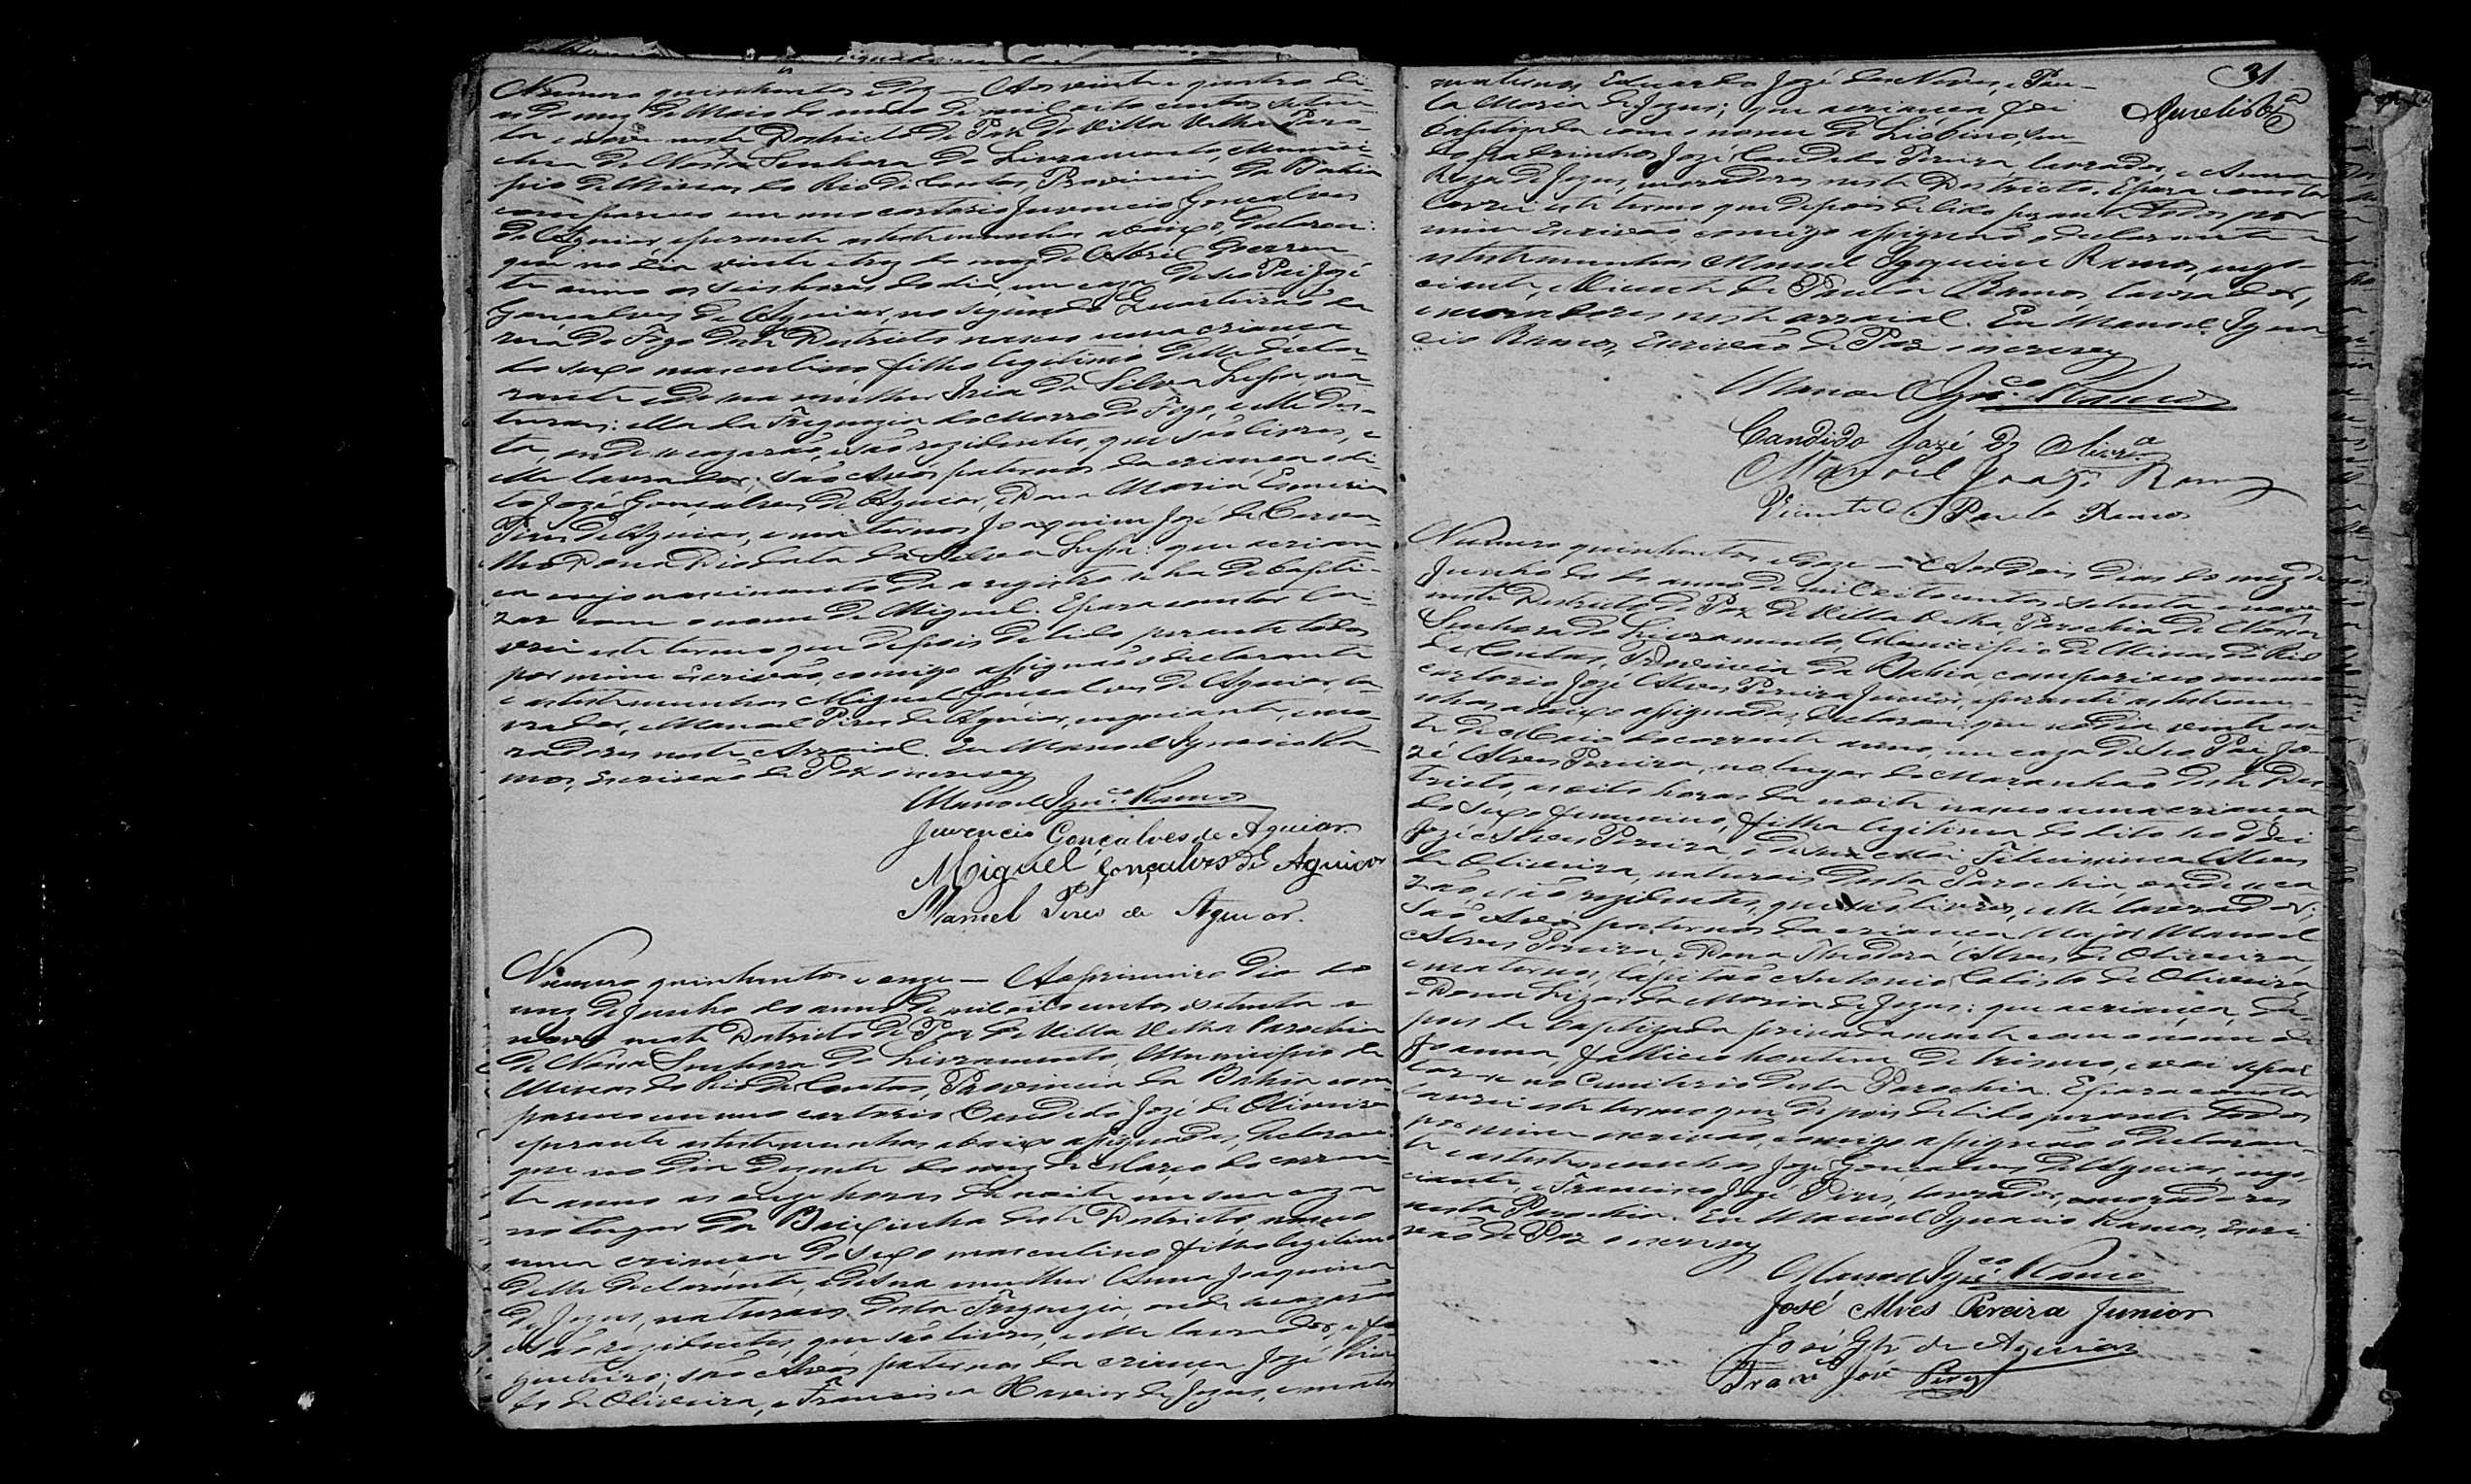 Numero quinhentos e dez — Aos vinte e quatro di-
as do mez de Maio do anno de mil oito centos seten-
ta e nove neste Destricto de Paz da Villa Velha Paro-
chia de Nossa Senhora do Livramento, Munici-
pio de Minas do Rio de Contas, Provincia da Bahia
compareceo em meo cartorio Juvencio Gonçalves
de Aguiar, e perante as testemunhas abaixo, declarou:
que no dia vinte e trez do mez de Abril do corren-
te anno as seis horas do dia, em caza de seo Pai José
Gonçalves de Aguiar, no segundo Quarteirão da
do Fogo deste Destricto nasceo uma criança
do sexo masculino filho legitimo delle decla-
rante e de sua mulher Iria da Silva Lessa, na-
turaes: ella da Freguezia do Morro do Fogo, e elle des-
ta, onde se cazarão, e são rezidentes, que são livres, e
elle lavrador. São Avós paternos da criança o di-
to José Gonçalves de Aguiar, e Dona Maria
Pires de Aguiar, e maternos Joaquim José de Carva-
lho e Dona da Silva Lessa: que a crian-
ça cujo nascimento dá a registro se ha de bapti-
zar com o nome de Miguel. E para constar la-
vrei este termo que depois de lido perante todos
por mim Escrivão, comigo assignão o declarante
e as testemunhas Miguel Gonçalves de Aguiar, la-
vrador, e Manoel Pires de Aguiar, negociante, e mo-
radores neste Arraial. Eu Manoel Ignacio Ra-
mos, Escrivão de Paz o escrevy
Manoel Ign.co Ramos
Juvencio Gonçalves de Aguiar
Miguel Gonçalves de Aguiar
Manoel Pires de Aguiar.
Numero quinhentos e onze — Ao primeiro dia do
mez de Junho do anno de mil oito centos e setenta e
nove neste Destricto de Paz da Villa Velha Parochia
de Nossa Senhora do Livramento, Municipio de
Minas do Rio de Contas, Provincia da Bahia com-
pareceo em meo cartorio Candido José de Oliveira
e perante as testemunhas abaixo assignadas, declarou
que no dia dezasete do mez de Março do corren-
te anno as onze horas da noite em sua caza
no lugar da Baixinha deste Destricto nasceo
uma criança do sexo masculino filho legitimo
delle declarante, e de sua mulher Anna Joaquina
de Jezus, naturaes desta Freguezia, onde se cazarão
e são rezidentes, que são livres, e elle lavrador, e
são Avós paternos da criança José
de Oliveira, e Francisca Xavier de Jezus, e mater
31
maternos Eduardo José das Neves, e Pau-
la Maria de Jezus; que a criança foi
baptizada com o nome de sen-
do padrinhos José Candido Pereira, lavrador, e Anna
Roza de Jezus, moradores neste Destricto. E para constar
lavrei este termo que depois de lido perante todos por
mim Escrivão comigo assignão o declarante e
as testemunhas Manoel Joaquim Ramos, nego-
ciante, e Vicente de Paula Ramos, lavrador,
e moradores neste arraial. Eu Manoel Igna-
cio Ramos, Escrivão de Paz o escrevy
Manoel Ign.co Ramos
Candido José de Olivr.a
Manoel Joaq.m Ramos
Vicente de Paula Ramos
Numero quinhentos e doze — Aos dois dias do mez de
Junho do anno de mil oito centos e setenta e nove
neste Destricto de Paz da Villa Velha, Parochia de Nossa
Senhora do Livramento, Municipio de Minas do Rio
de Contas, Provincia da Bahia, compareceo em meo
cartorio José Alves Pereira Junior, e perante as testemu-
nhas abaixo assignadas, declarou: que no dia vinte e
de Maio do corrente anno, em caza de seo Pai Jo-
sé Alves Pereira, no lugar do Maranhão deste Des-
tricto, as oito horas da noite nasceo uma criança
do sexo femenino, filha legitima do dito seo Pai
José Alves Pereira, e de sua Mãi Alves
de Oliveira, naturaes desta Parochia, onde se ca-
zarão e são rezidentes, que são livres, e elle lavrador;
São Avós paternos da criança Major Manoel
Alves Pereira, e Dona Theodora Alves de Oliveira,
e maternos, Capitão Antonio Calisto de Oliveira,
e Dona Lizarda Maria de Jezus: que a criança, de-
pois de baptizada privadamente com o nome de
Joanna, falleceo hontem de trismo, e vai sepul-
tar-se no Cemiterio desta Parochia. E para constar
lavrei este termo que depois de lido perante todos
por mim escrivão, comigo assignão o declaran-
te e as testemunhas José Gonçalves de Aguiar, nego-
ciante, e Francisco José Pires, lavrador, e moradores
nesta Parochia. Eu Manoel Ignacio Ramos, Escri-
vão de Paz o escrevy
Manoel Ign.co Ramos
José Alves Pereira Junior
José Glz de Aguiar
Fran.co José Pires